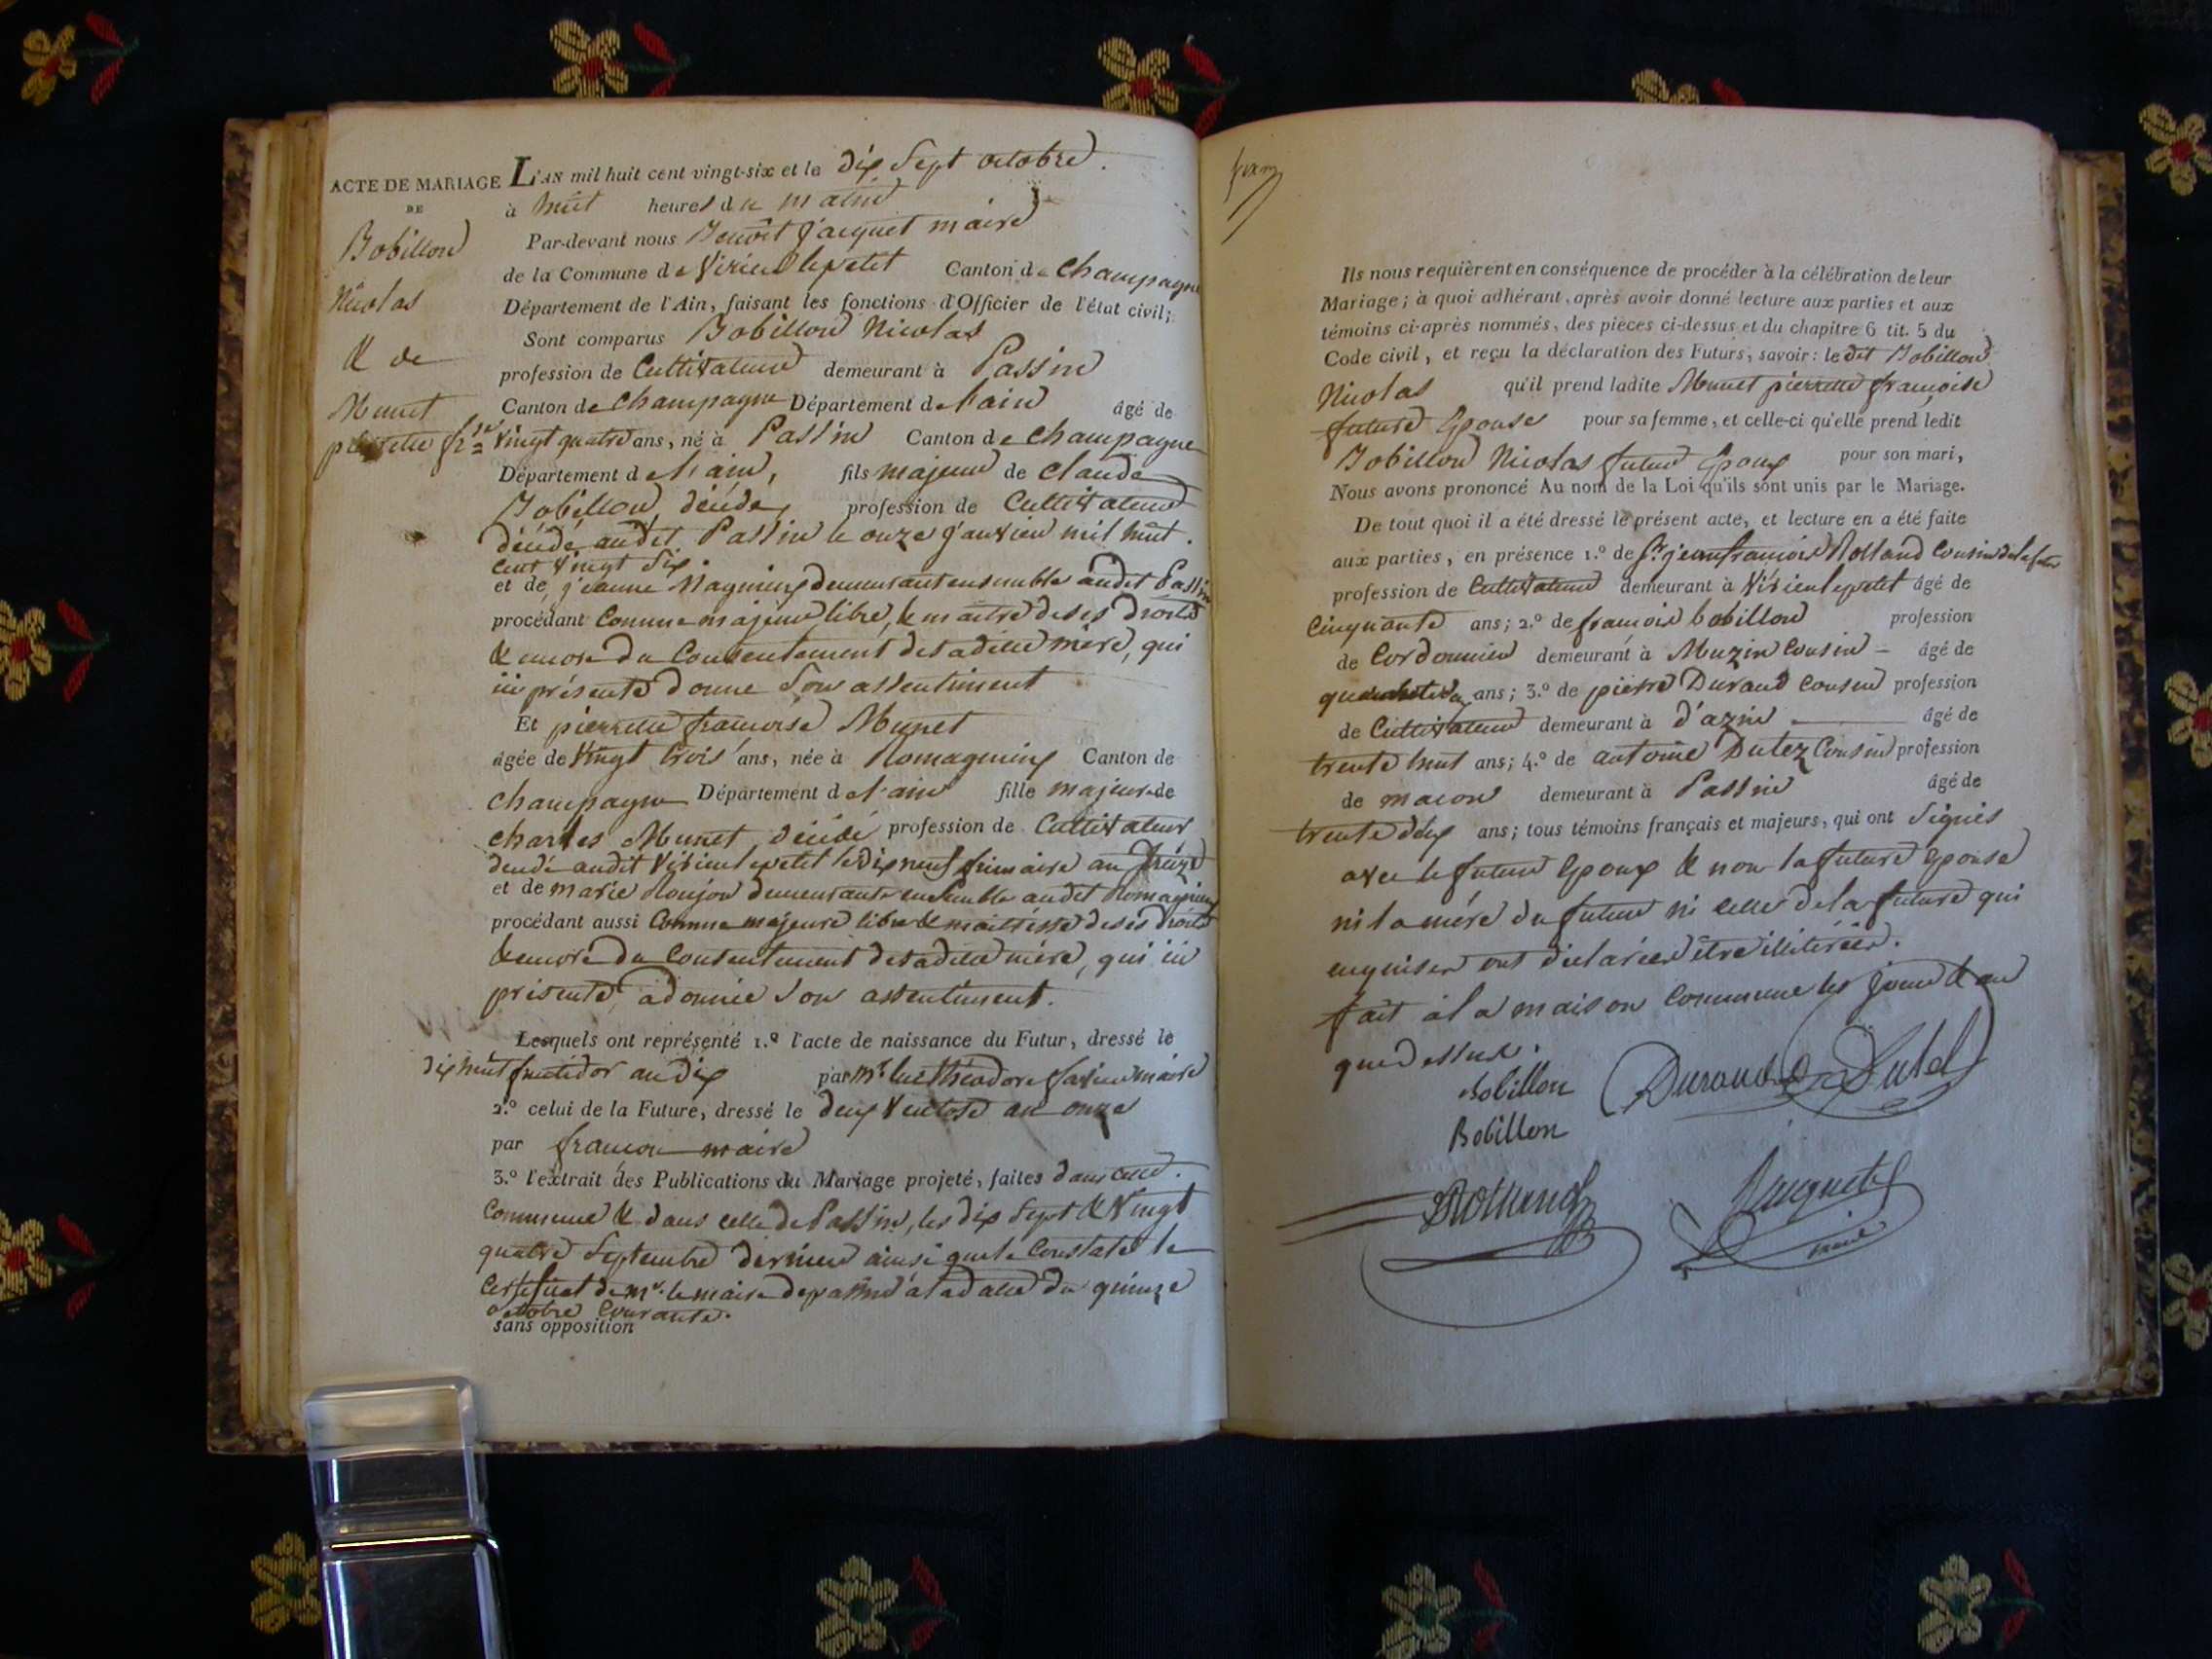 ACTE DE MARIAGE
DE
Bobillon
Nicolas
& de
Munet
pierrette
L'AN mil huit cent vingt-six et le dix sept octobre.
à huit heures du matin
Par-devant nous Benoit Jacquet maire
de la Commune de Virieu le petit Canton de Champagne
Département de l'Ain, faisant les fonctions d'Officier de l'état civil;
Sont comparus Bobillon Nicolas
profession de Cultivateur demeurant à Passin
Canton de Champagne Département de l'ain âgé de
vingt quatre ans, né à Passin Canton de Champagne
Département de l'ain, fils majeur de Claude
Bobillon décédé, profession de Cultivateur
décédé audit Passin le onze janvier mil huit.
cent vingt six
et de, jeanne demeurant ensemble audit Passin
procédant Comme majeur libre, & maitre de ses Droits
& encore du Consentement de sadite mère, qui
ici présente donne son assentiment
Et pierrette françoise Munet
âgée de vingt trois ans, née à Romagnieux Canton de
Champagne Département de l'ain fille majeure de
Charles Munet décédé profession de Cultivateur
décédé audit Virieu le petit le dix neuf frimaire an treize
et de marie Roujon demeurante ensemble audit Romagnieux
procédant aussi Comme majeure libre & maitresse de ses Droits
& encore du Consentement de sadite mère, qui ici
présente, a donnée son assentiment.
Lesquels ont représenté 1.º l'acte de naissance du Futur, dressé le
dix huit fructidor an dix par Mr. Luc théodore maire
2.º celui de la Future, dressé le deux Ventose an onze
par françon maire
3.º l'extrait des Publications du Mariage projeté, faites dans cette.
Commune & dans celle de Passin, les dix sept & vingt
quatre Septembre dernier ainsi que le Constate le
Certificat de Mr. le maire de passin à la date du quinze
octobre Courante.
sans opposition
Ils nous requièrent en conséquence de procéder à la célébration de leur
Mariage; à quoi adhérant, après avoir donné lecture aux parties et aux
témoins ci-après nommés, des pièces ci-dessus et du chapitre 6 tit. 5 du
Code civil, et reçu la déclaration des Futurs, savoir: le dit Bobillon
Nicolas qu'il prend ladite Munet pierrette françoise
future Epouse pour sa femme, et celle-ci qu'elle prend ledit
Bobillon Nicolas futur Epoux pour son mari,
Nous avons prononcé Au nom de la Loi qu'ils sont unis par le Mariage.
De tout quoi il a été dressé le présent acte, et lecture en a été faite
aux parties, en présence 1.º de Sr. jean françois Rolland Cousin de la future
profession de Cultivateur demeurant à Virieu le petit âgé de
Cinquante ans; 2.º de françois bobillon profession
de Cordonnier demeurant à Muzin Cousin - âgé de
ans; 3.º de pierre Durand Cousin profession
de Cultivateur demeurant à d'azin âgé de
trente huit ans; 4.º de antoine Dutez Cousin profession
de macon demeurant à Passin âgé de
trente deux ans; tous témoins français et majeurs, qui ont Signés
avec le futur Epoux & non la future Epouse
ni la mére du futur ni celle de la future qui
enquises ont déclarées être illitérées.
fait à la maison Commune les jour & an
que dessus.
Bobillon Durand Dutel
Bobillon
Rolland Jacquet
maire